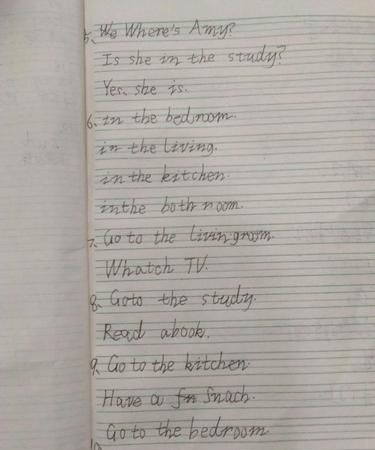 5、We Where's Amy?
Is she in the study?
Yes. she is.
6、In the bedroom.
in the living.
in the kitchen.
inthe both room.
7、Go to the livingroom.
Whatch TV.
8、Goto the study.
Read abook.
9、Go to the kitchen.
Have a fn Snach.
Go to the bedroom.
10